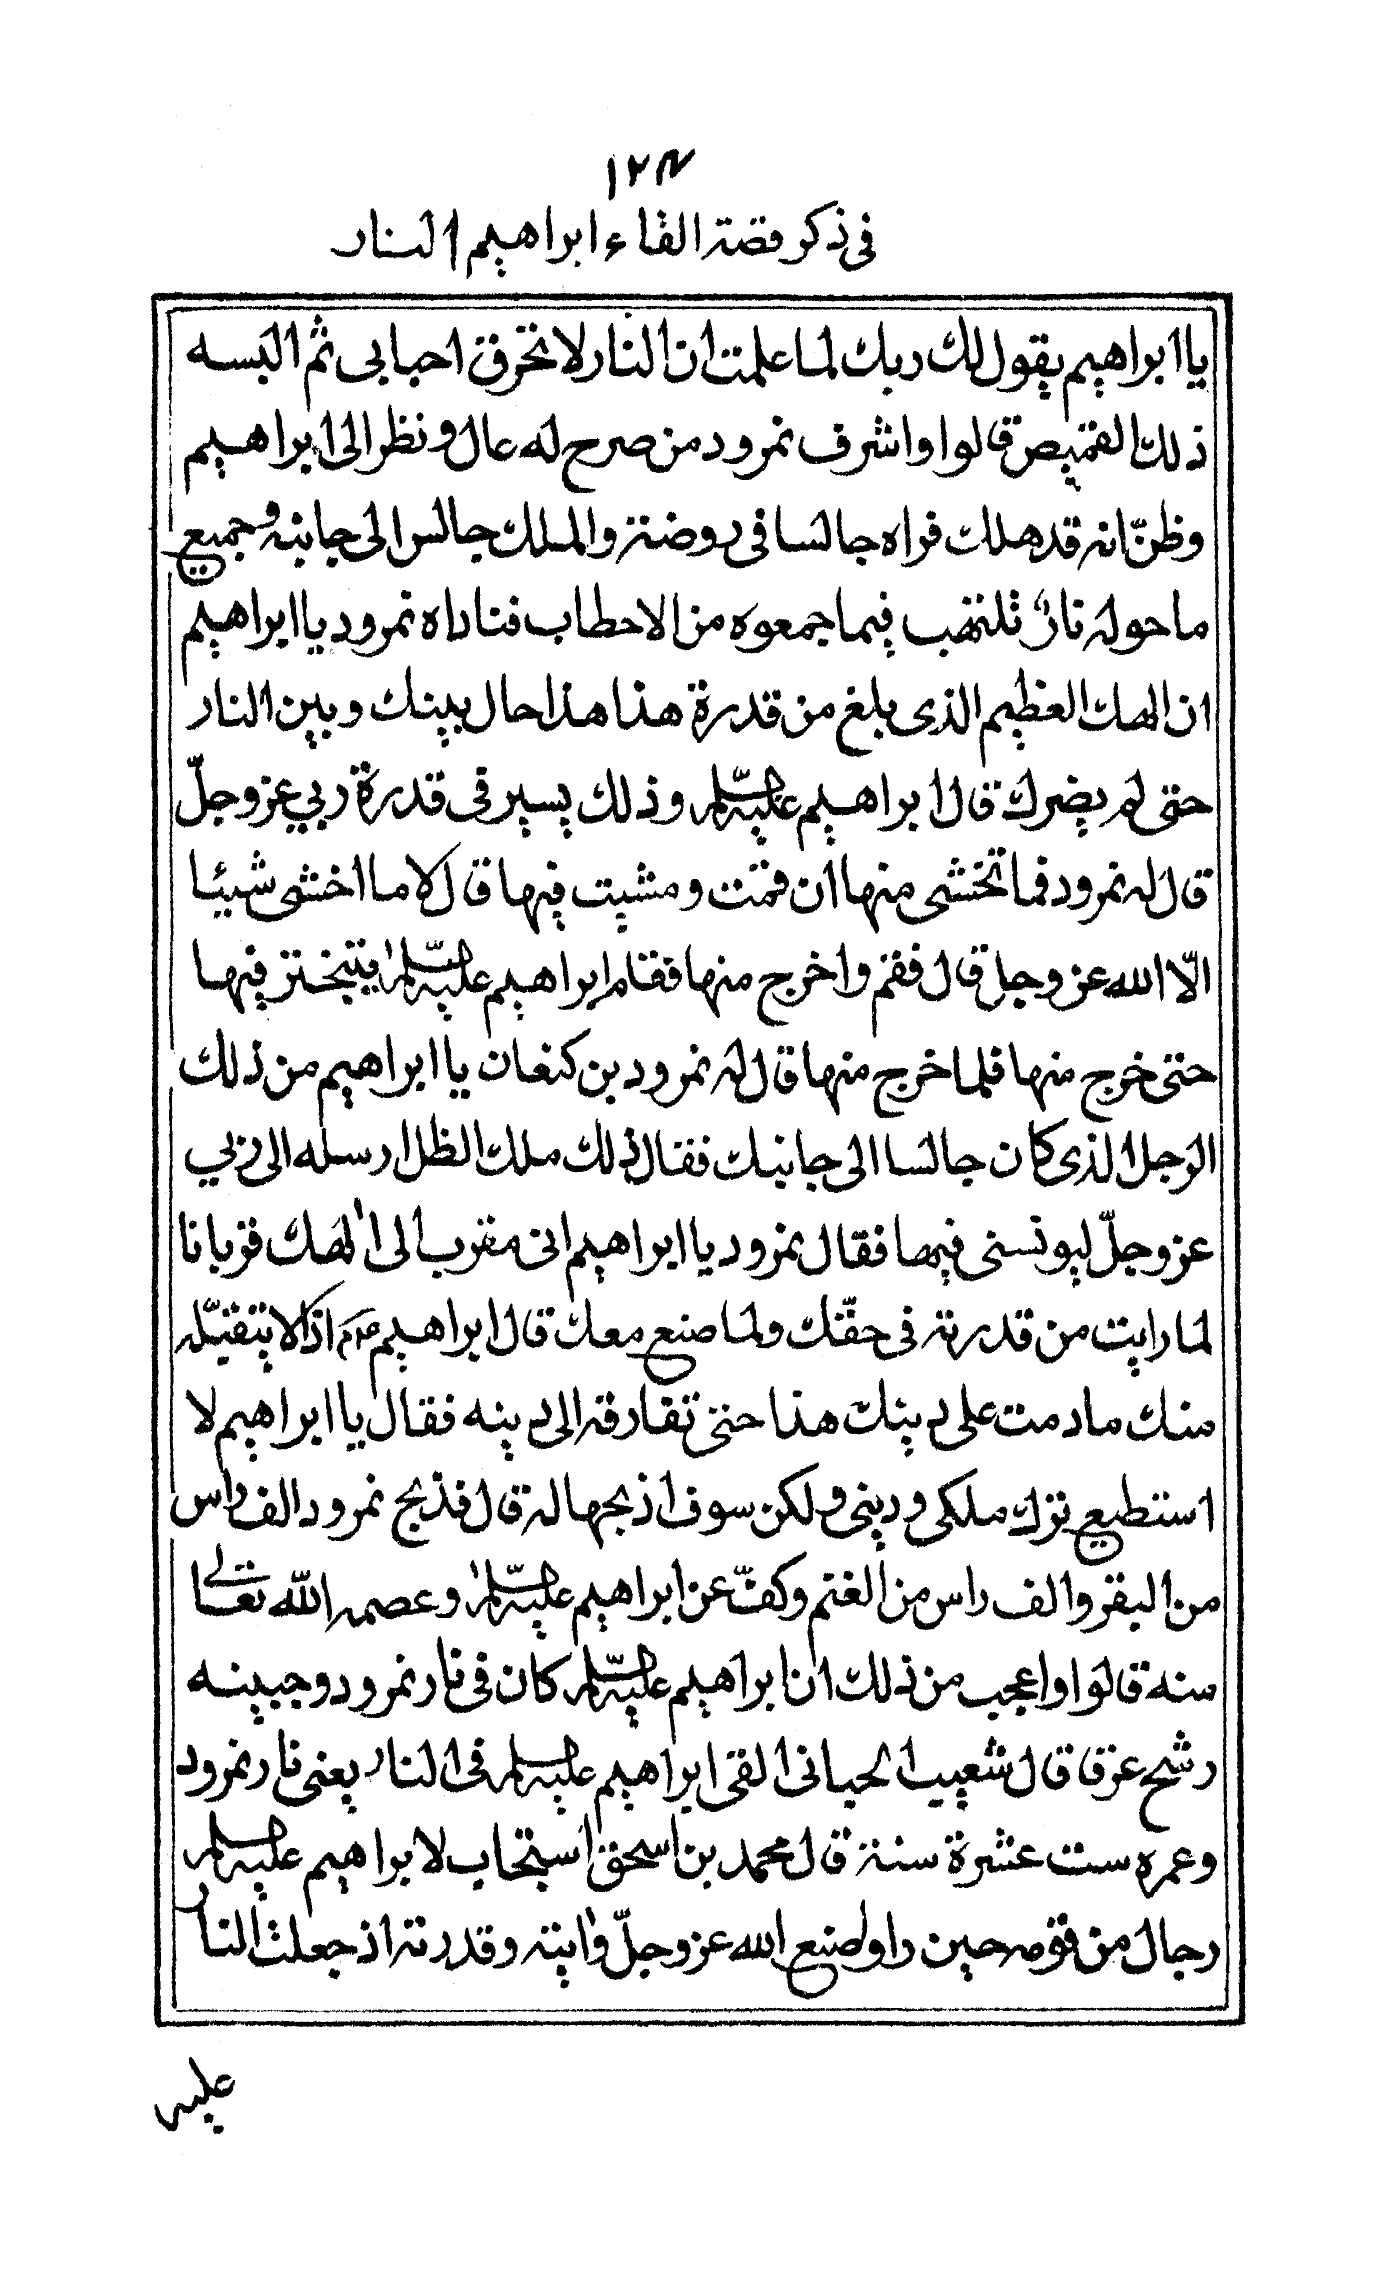 ١٢٧
فى ذكر قصة القاء ابراهيم النار
يا ابراهيم يقول لك ربك لما علمت ان النار لا تحرق احبابى ثم البسه
ذلك القميص قالوا واشرف نمرود من صرح له عال ونظر الى ابراهيم
وظنّ انه قد هلك فراه جالسا فى روضة والملك جالس الى جانبه وجميع
ما حوله نارٌ تلتهب فيما جمعوه من الاحطاب فناداه نمرود يا ابراهيم
ان الهك العظيم الذى بلغ من قدرة هذا هذا حال بينك وبين النار
حتى لم يضرك قال ابراهيم عليه السلم وذلك يسير فى قدرة ربي عز وجلّ
قال له نمرود فما تخشى منها ان قمت ومشيت فيها قال لا ما اخشى شيئا
الّا الله عز وجل قال فقم واخرج منها فقام ابراهيم عليه السّلم يتبختر فيها
حتى خرج منها فلما خرج منها قال له نمرود بن كنعان يا ابراهيم من ذلك
الرجل الذى كان جالسا الى جانبك فقال ذلك ملك الظل ارسله الى ربي
عز وجلّ ليونسنى فيها فقال نمرود يا ابراهيم انى مقرب الى الهك قربانا
لما رايت من قدرته فى حقّك ولما صنع معك قال ابراهيم عم اذا لا يتقبّله
منك ما دمت على دينك هذا حتى تفارقه الى دينه فقال يا ابراهيم لا
استطيع ترك ملكى ودينى ولكن سوف اذبحها له قال فذبح نمرود الف راس
من البقر والف راس من الغنم وكفّ عن ابراهيم عليه السّلم وعصمه الله تعالى
منه قالوا واعجب من ذلك ان ابراهيم عليه السّلم كان فى نار نمرود وجبينه
رشح عرقا قال شعيب الجبانى القى ابراهيم عليه السلم فى النار يعنى نار نمرود
وعمره ست عشرة سنة قال محمد بن اسحق استجاب لابراهيم عليه السلم
رجال من قومه حين راوا صنع الله عز وجلّ وايته وقدرته اذ جعلت النار
عليه